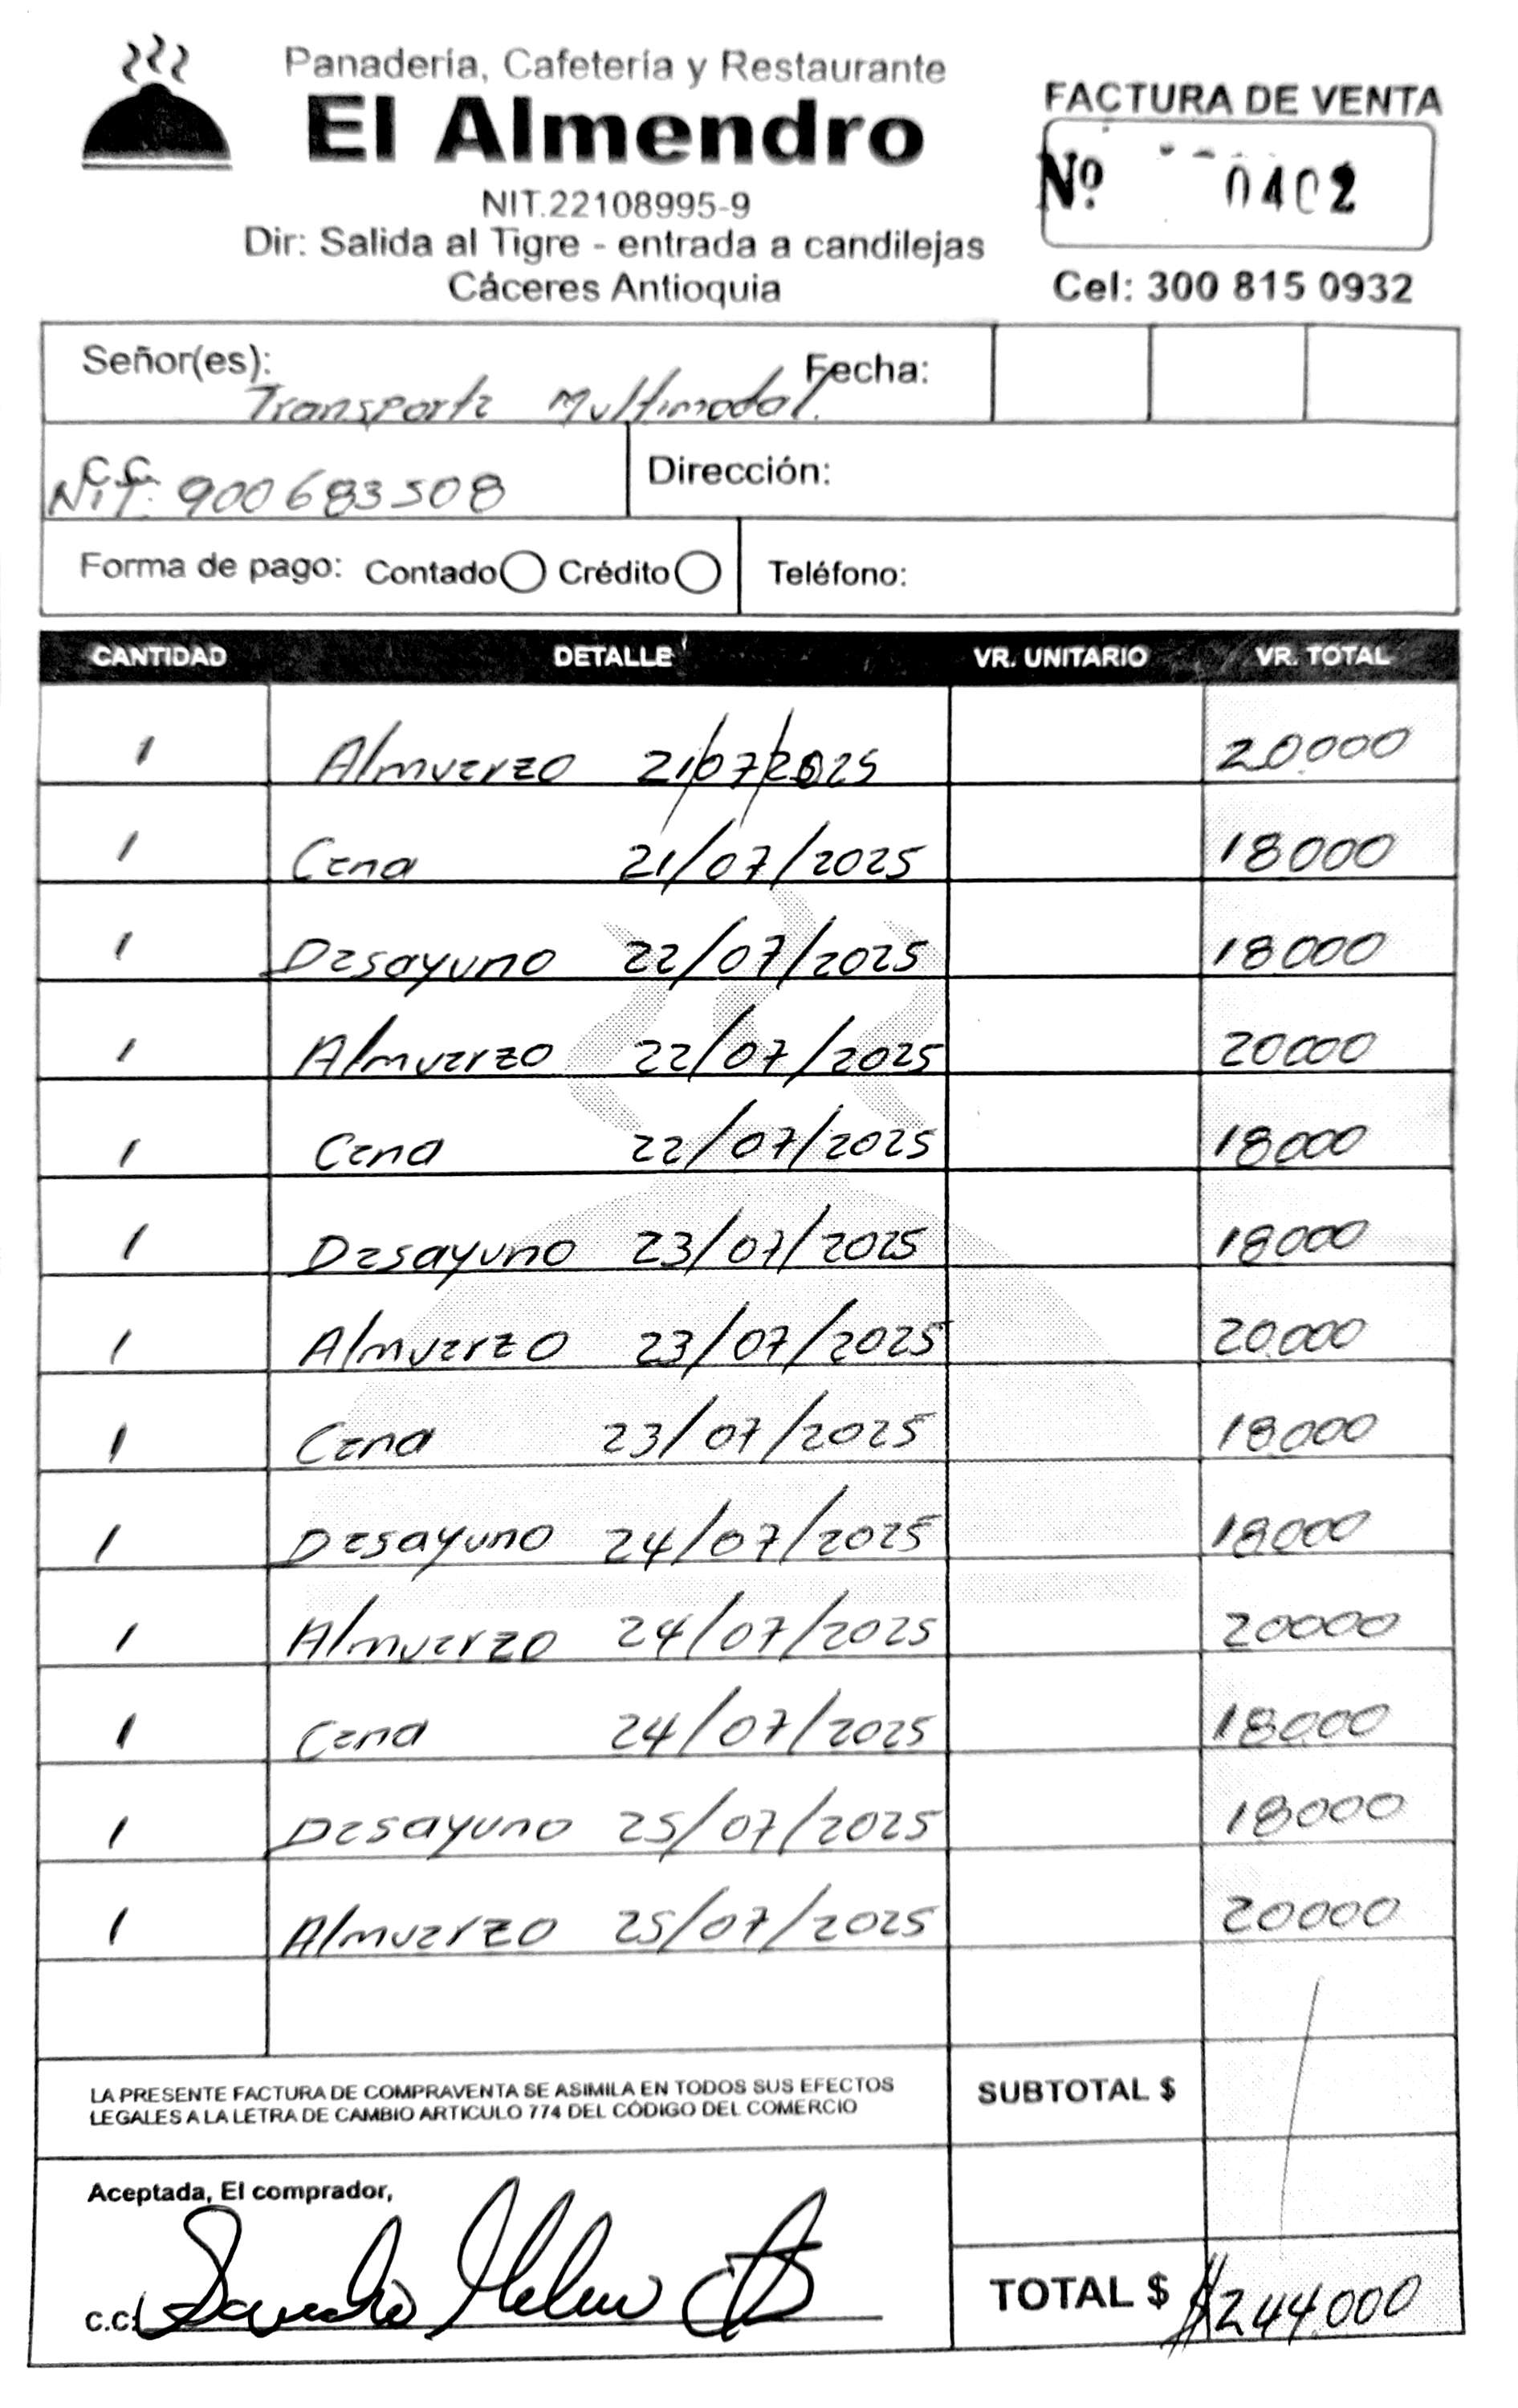 Panadería, Cafetería y Restaurante
El Almendro
NIT.22108995-9
Dir: Salida al Tigre - entrada a candilejas
Cáceres Antioquia
FACTURA DE VENTA
Nº 0402
Cel: 300 815 0932
Señor(es): Transporte Multimodal. Fecha:
C.C. Nit: 900683508 Dirección:
Forma de pago: Contado Crédito Teléfono:
CANTIDAD DETALLE VR. UNITARIO VR. TOTAL
1 Almuerzo 21/07/2025 20.000
1 Cena 21/07/2025 18000
1 Desayuno 22/07/2025 18000
1 Almuerzo 22/07/2025 20000
1 Cena 22/07/2025 18000
1 Desayuno 23/07/2025 18000
1 Almuerzo 23/07/2025 20.000
1 Cena 23/07/2025 18000
1 Desayuno 24/07/2025 18000
1 Almuerzo 24/07/2025 20000
1 Cena 24/07/2025 18000
1 Desayuno 25/07/2025 18000
1 Almuerzo 25/07/2025 20000
LA PRESENTE FACTURA DE COMPRAVENTA SE ASIMILA EN TODOS SUS EFECTOS
LEGALES A LA LETRA DE CAMBIO ARTICULO 774 DEL CÓDIGO DEL COMERCIO
SUBTOTAL $
Aceptada, El comprador,
C.C.
TOTAL $ $244.000